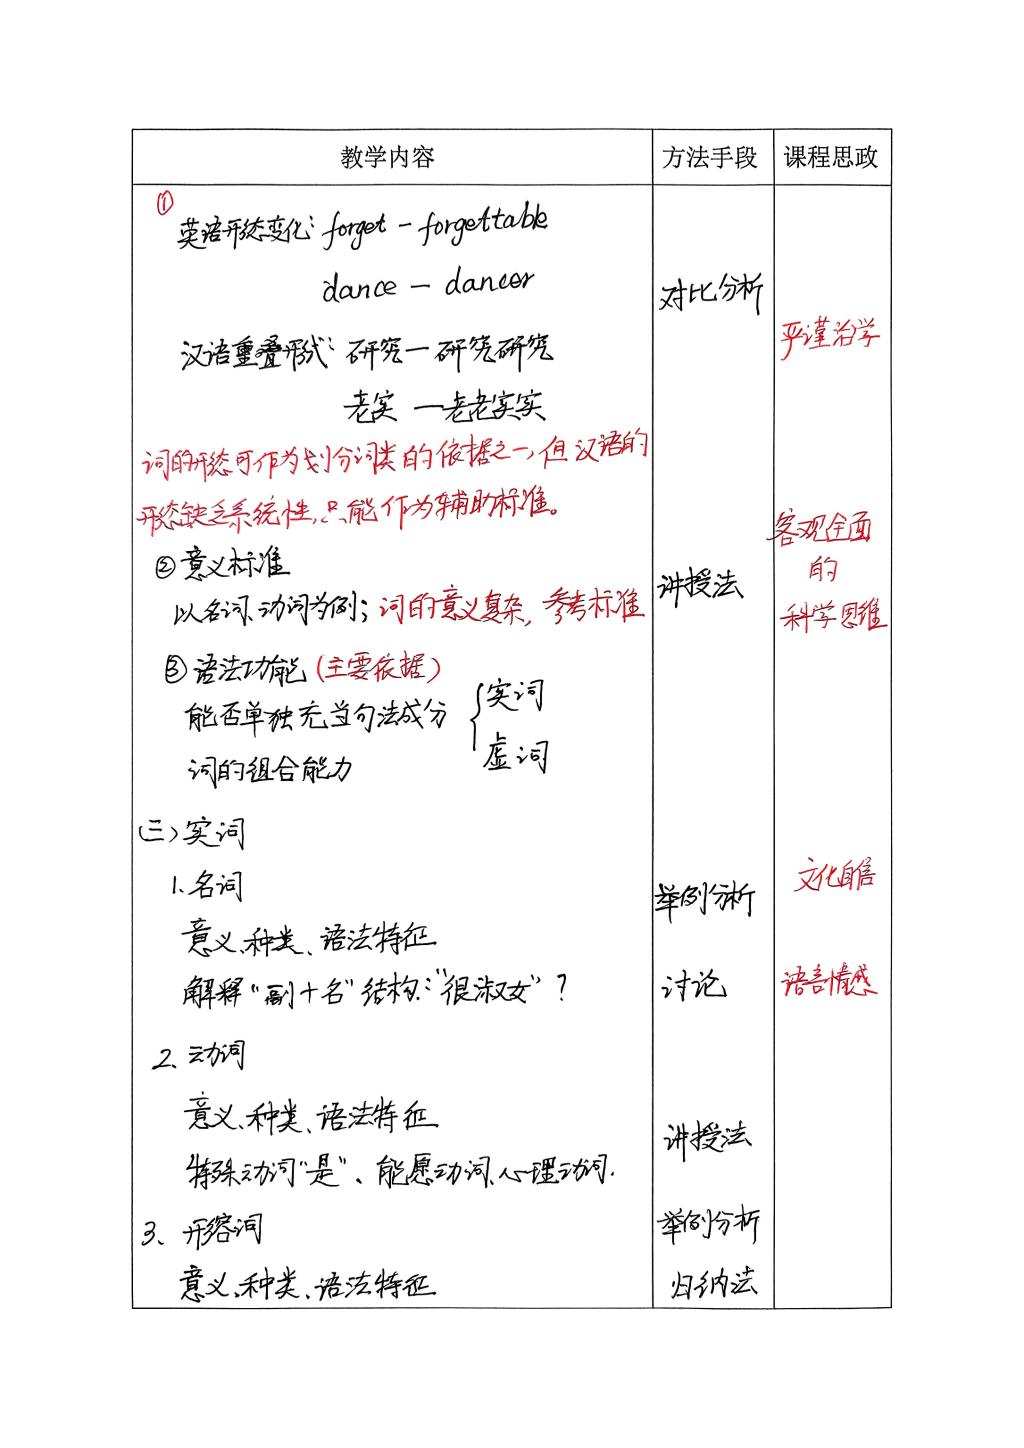 教学内容 方法手段 课程思政
①
英语形态变化: forget — forgettable
dance — dancer
对比分析
严谨治学
汉语重叠形式: 研究—研究研究
老实 —老老实实
词的形态可作为划分词类的依据之一,但汉语的
形态缺乏系统性,只能作为辅助标准。
客观全面
的
科学思维
②意义标准
讲授法
以名词、动词为例; 词的意义复杂, 参考标准
③语法功能(主要依据)
能否单独充当句法成分 { 实词
虚词
词的组合能力
(三)实词
1.名词
文化自信
举例分析
意义、种类、语法特征
解释“副+名”结构:“很淑女”?
讨论
语言情感
2、动词
意义、种类、语法特征
讲授法
特殊动词“是”、能愿动词、心理动词.
3、形容词
举例分析
意义、种类、语法特征
归纳法